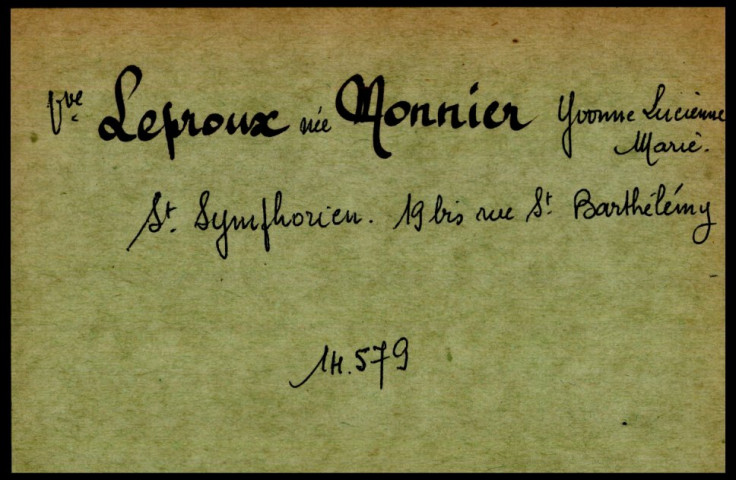 Vve Leproux née Monnier Yvonne Lucienne
Marie.
St. Symphorien. 19 bis rue St. Barthélémy
14.579